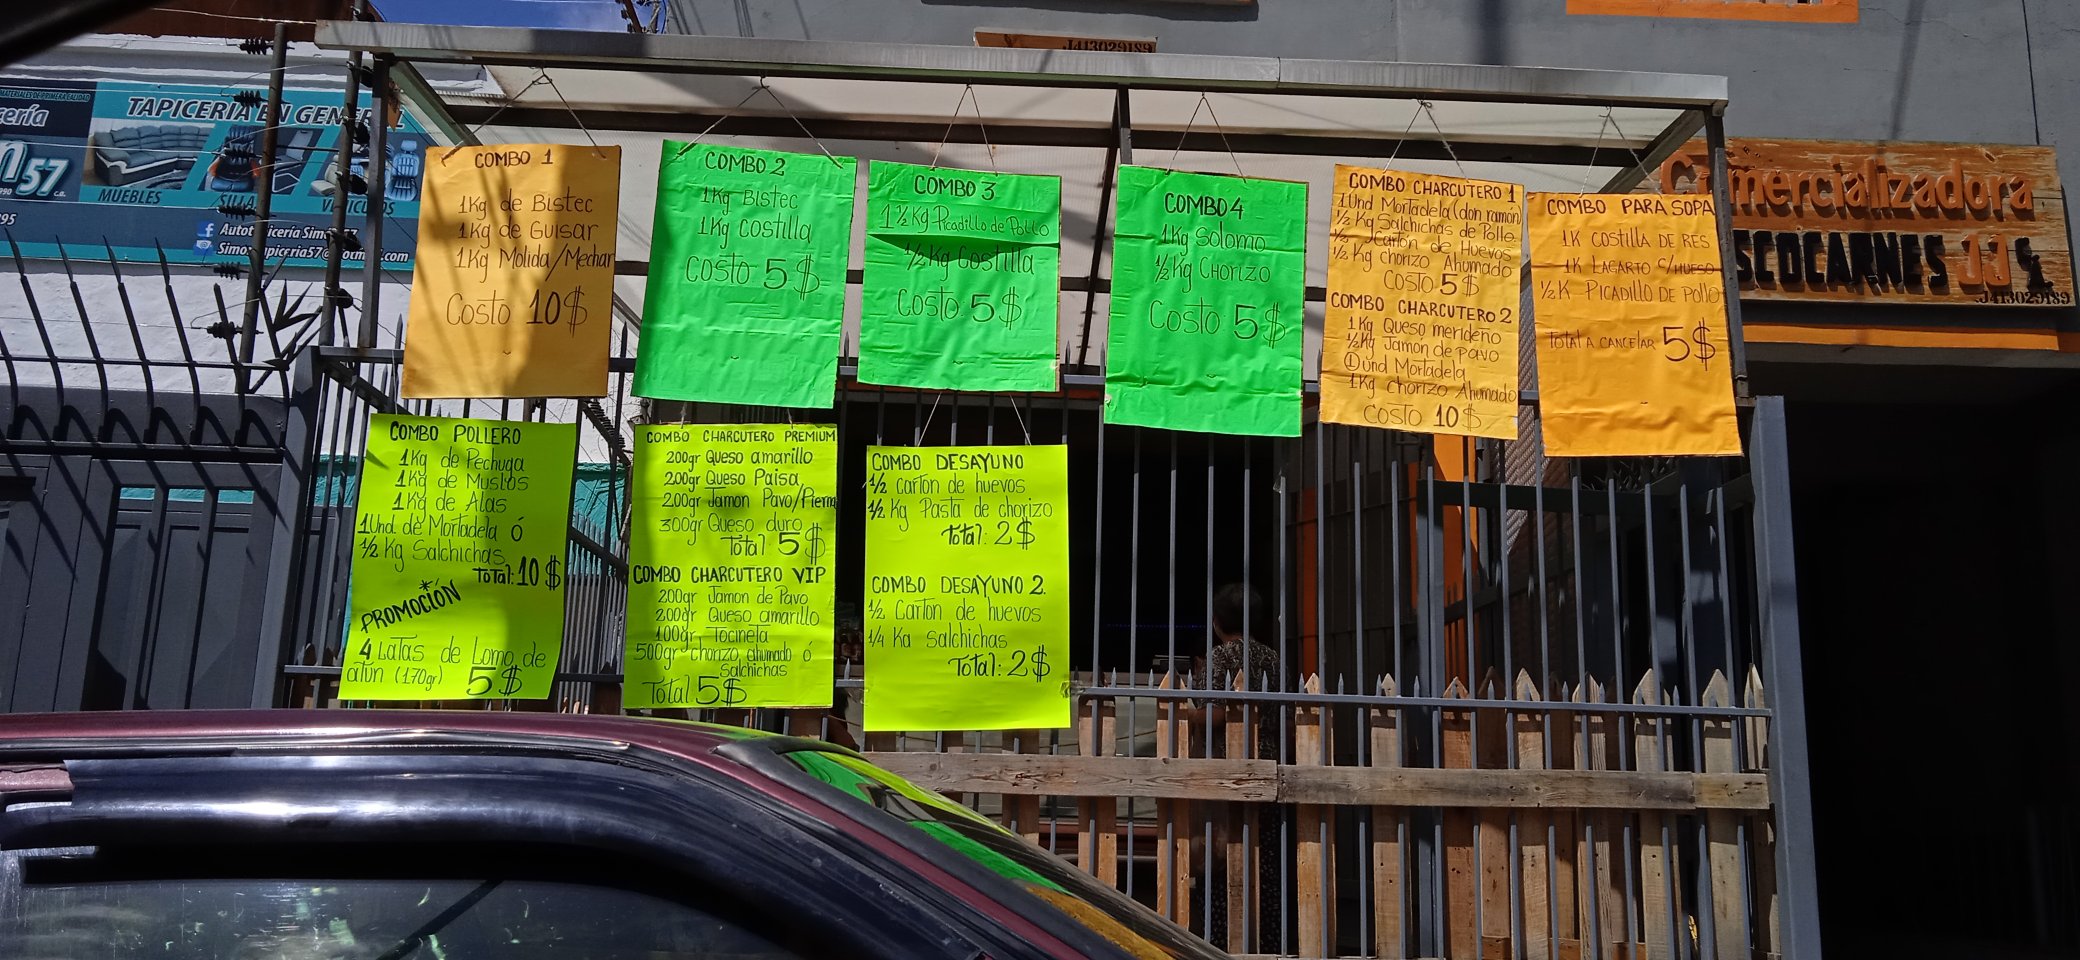 J413029189
MATERIALES DE PRIMERA CALIDAD
cería
n57
990
c.a.
TAPICERIA EN GENERAL
MUEBLES
SILLAS
VEHICULOS
COMBO 1
1Kg de Bistec
1Kg de Guisar
1Kg Molida/Mechar
Costo 10$
COMBO 2
1Kg Bistec
1Kg Costilla
Costo 5$
COMBO 3
1 ½ Kg Picadillo de Pollo
½ Kg Costilla
Costo 5$
COMBO 4
1Kg Solomo
½ Kg Chorizo
Costo 5$
COMBO CHARCUTERO 1
1Und Mortadela (don ramón)
½ Kg Salchichas de Pollo
½ Cartón de Huevos
½ Kg chorizo Ahumado
Costo 5$
COMBO CHARCUTERO 2
1Kg Queso merideño
½Kg Jamon de pavo
1und Mortadela
1Kg chorizo Ahumado
Costo 10$
COMBO PARA SOPA
1K COSTILLA DE RES
1K LAGARTO C/HUESO
½K PICADILLO DE POLLO
TOTAL A CANCELAR 5$
Comercializadora
SCOCARNES JJ
J413029189
COMBO POLLERO
1Kg de Pechuga
1Kg de Muslos
1Kg de Alas
1Und. de Mortadela ó
½ Kg Salchichas
Total: 10$
PROMOCIÓN
4 Latas de Lomo de
atún (170gr) 5$
COMBO CHARCUTERO PREMIUM
200gr Queso amarillo
200gr Queso Paisa
200gr Jamon Pavo/Pierna
300gr Queso duro
Total 5$
COMBO CHARCUTERO VIP
200gr Jamon de Pavo
200gr Queso amarillo
100gr Tocineta
500gr chorizo ahumado ó
Salchichas
Total 5$
COMBO DESAYUNO
½ Cartón de huevos
½ Kg Pasta de chorizo
Total: 2$
COMBO DESAYUNO 2.
½ Cartón de huevos
¼ Kg Salchichas
Total: 2$